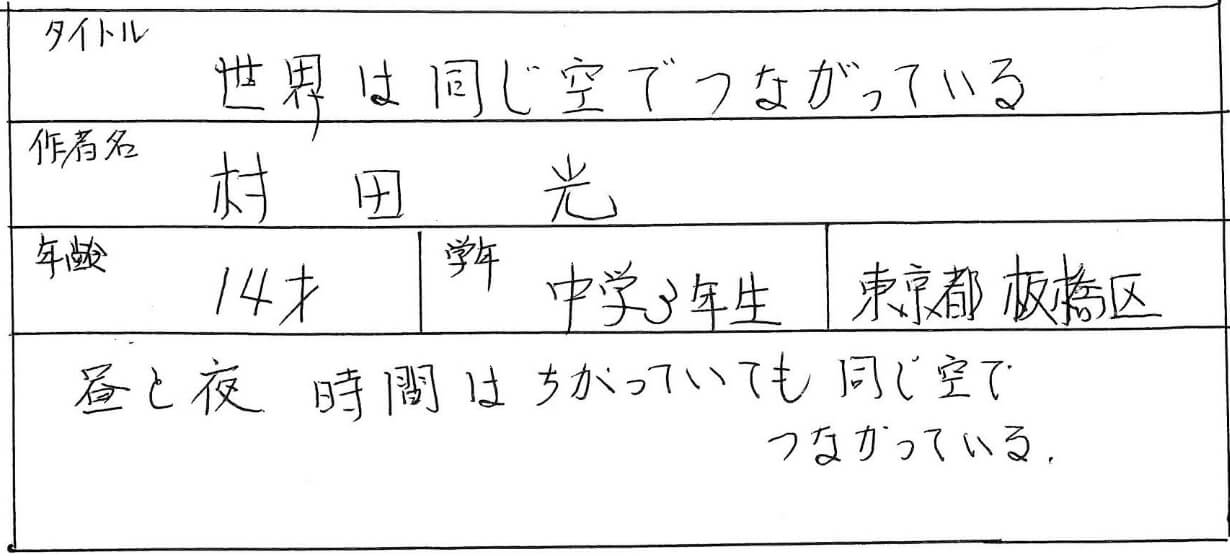 タイトル
世界は同じ空でつながっている
作者名
村田 光
年齢
14才
学年
中学3年生
東京都 板橋区
昼と夜 時間はちがっていても同じ空で
つながっている.